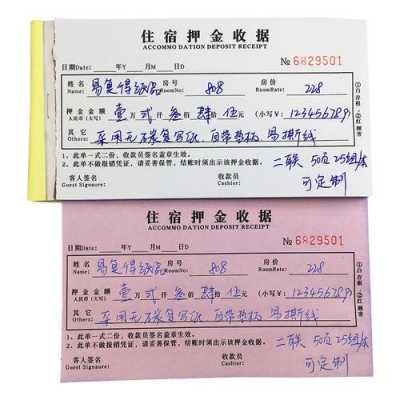 住宿押金收据
ACCOMMO DATION DEPOSIT RECEIPT
日期Date: 年Y 月M 日D № 6829501
姓名 易复得纸品 房号 808 房价 228
Name: Room: RoomRate:
押金金额 壹万贰仟叁佰肆拾伍元 (小写¥: 123456789)
人民币(大写)
其它 采用无碳复写纸,自带垫板 易撕线
Others:
1、此单一式二份,收款员签名盖章生效。
2、此单不做报销凭证,请妥善保管,结帐时须出示该押金收据。
客人签名 收款员
Guest Signature: Cashier:
二联 50页25组/本
可定制
①白存根 ②红顾客
住宿押金收据
ACCOMMO DATION DEPOSIT RECEIPT
日期Date: 年Y 月M 日D № 6829501
姓名 易复得纸品 房号 808 房价 228
Name: Room: RoomRate:
押金金额 壹万贰仟叁佰肆拾伍元 (小写¥: 123456789)
人民币(大写)
其它 采用无碳复写纸,自带垫板 易撕线
Others:
1、此单一式二份,收款员签名盖章生效。
2、此单不做报销凭证,请妥善保管,结帐时须出示该押金收据。
客人签名 收款员
Guest Signature: Cashier:
二联 50页25组/本
可定制
①白存根 ②红顾客